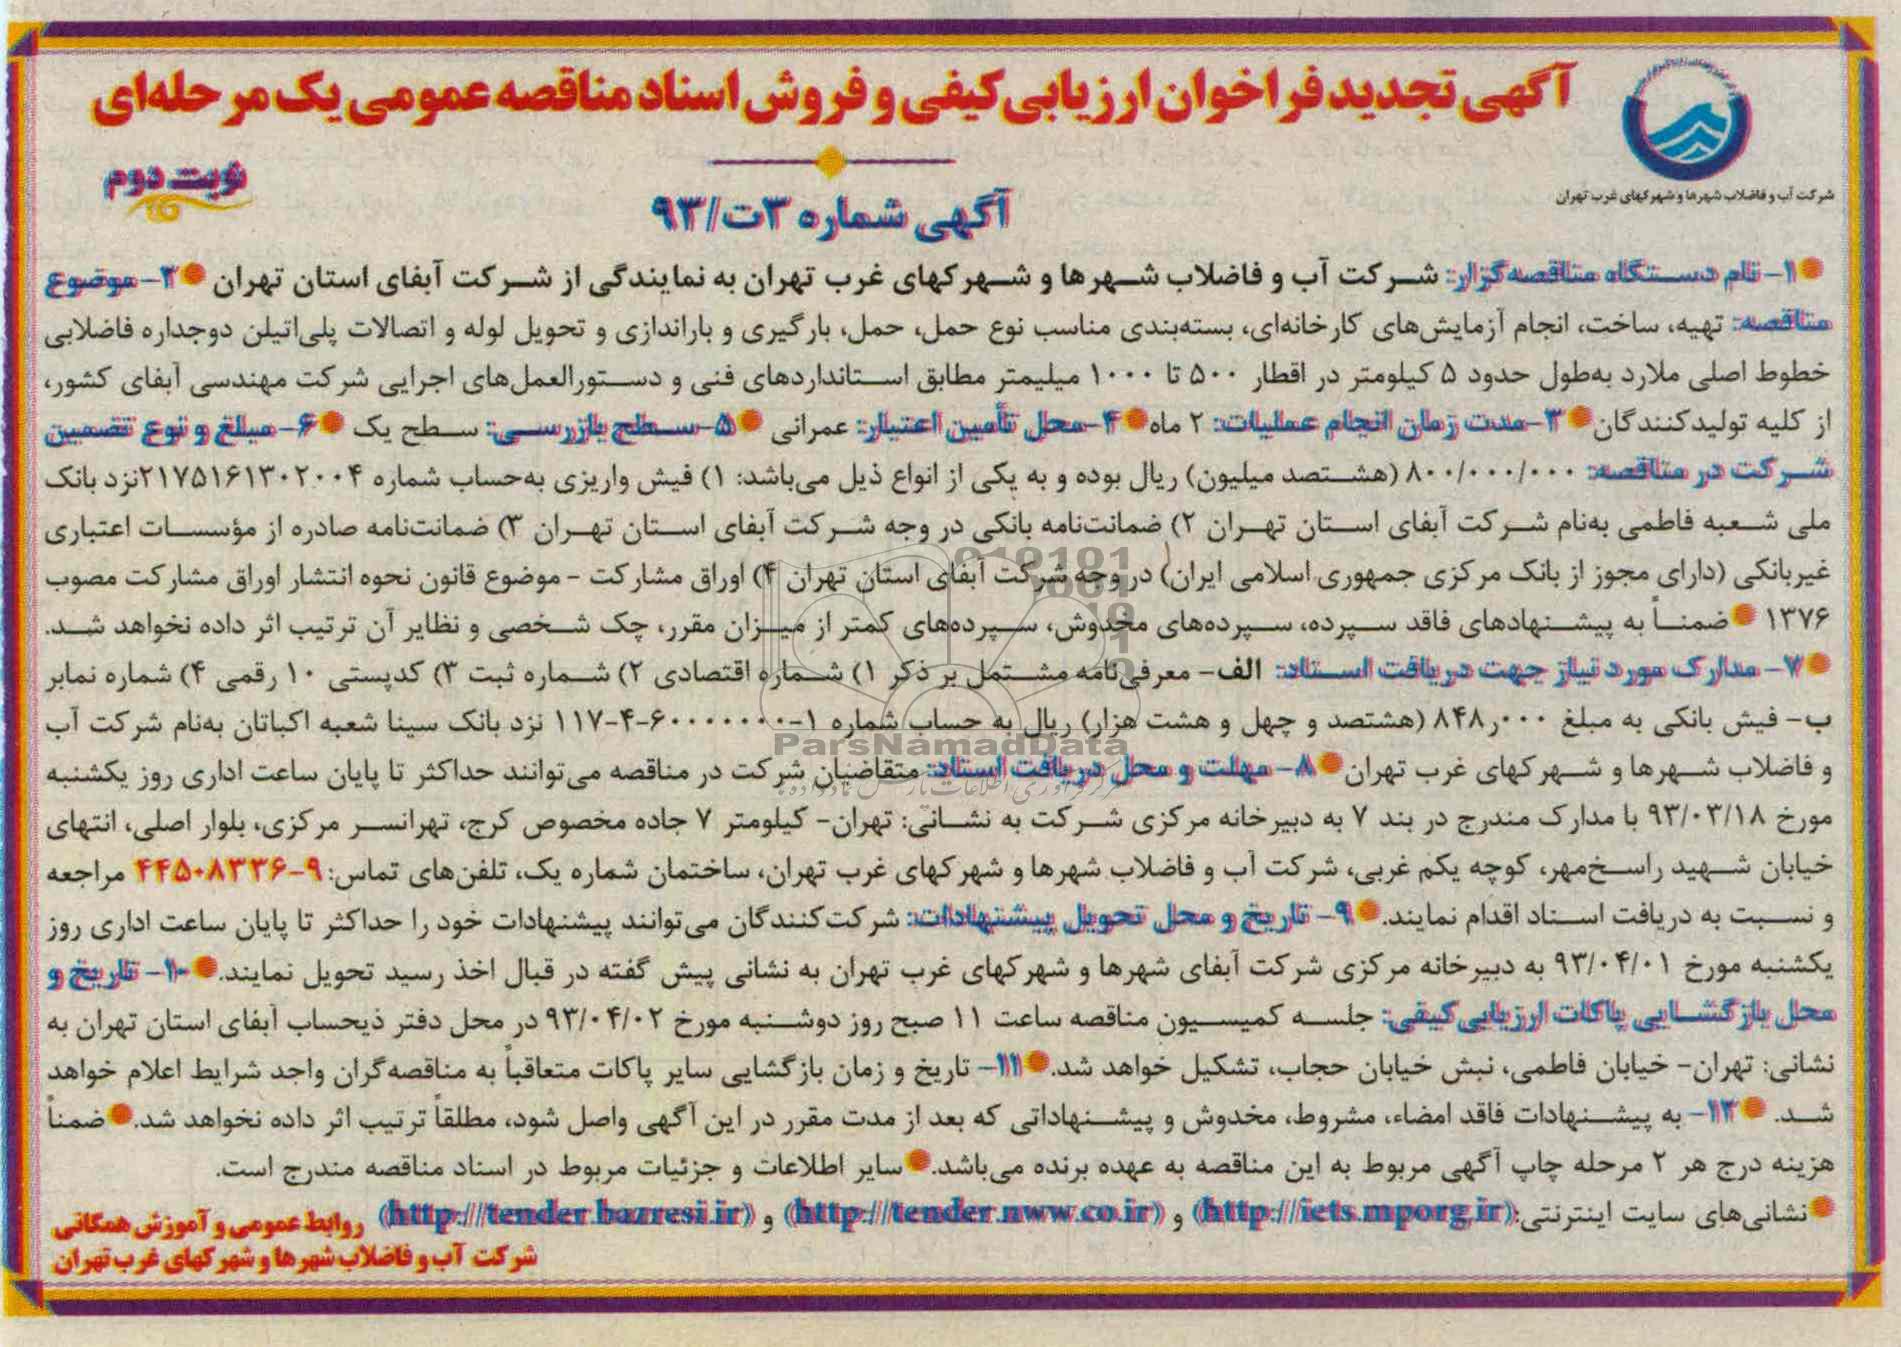 آگهی تجدید فراخوان ارزیابی کیفی و فروش اسناد مناقصه عمومی یک مرحله‌ای
شرکت آب و فاضلاب شهرها و شهرکهای غرب تهران
نوبت دوم
آگهی شماره ۳ت/۹۳
۱- نام دستگاه مناقصه‌گزار: شرکت آب و فاضلاب شهرها و شهرکهای غرب تهران به نمایندگی از شرکت آبفای استان تهران ۲- موضوع
مناقصه: تهیه، ساخت، انجام آزمایش‌های کارخانه‌ای، بسته‌بندی مناسب نوع حمل، حمل، بارگیری و باراندازی و تحویل لوله و اتصالات پلی‌اتیلن دوجداره فاضلابی
خطوط اصلی ملارد به‌طول حدود ۵ کیلومتر در اقطار ۵۰۰ تا ۱۰۰۰ میلیمتر مطابق استانداردهای فنی و دستورالعمل‌های اجرایی شرکت مهندسی آبفای کشور،
از کلیه تولیدکنندگان ۳- مدت زمان انجام عملیات: ۲ ماه ۴- محل تأمین اعتبار: عمرانی ۵- سطح بازرسی: سطح یک ۶- مبلغ و نوع تضمین
شرکت در مناقصه: ۸۰۰/۰۰۰/۰۰۰ (هشتصد میلیون) ریال بوده و به یکی از انواع ذیل می‌باشد: ۱) فیش واریزی به‌حساب شماره ۲۱۷۵۱۶۱۳۰۲۰۰۴ نزد بانک
ملی شعبه فاطمی به‌نام شرکت آبفای استان تهران ۲) ضمانت‌نامه بانکی در وجه شرکت آبفای استان تهران ۳) ضمانت‌نامه صادره از مؤسسات اعتباری
غیربانکی (دارای مجوز از بانک مرکزی جمهوری اسلامی ایران) در وجه شرکت آبفای استان تهران ۴) اوراق مشارکت - موضوع قانون نحوه انتشار اوراق مشارکت مصوب
۱۳۷۶ ضمناً به پیشنهادهای فاقد سپرده، سپرده‌های مخدوش، سپرده‌های کمتر از میزان مقرر، چک شخصی و نظایر آن ترتیب اثر داده نخواهد شد.
۷- مدارک مورد نیاز جهت دریافت اسناد: الف- معرفی‌نامه مشتمل بر ذکر ۱) شماره اقتصادی ۲) شماره ثبت ۳) کدپستی ۱۰ رقمی ۴) شماره نمابر
ب- فیش بانکی به مبلغ ۸۴۸٫۰۰۰ (هشتصد و چهل و هشت هزار) ریال به حساب شماره ۱-۶۰۰۰۰۰۰۰-۴-۱۱۷ نزد بانک سینا شعبه اکباتان به‌نام شرکت آب
و فاضلاب شهرها و شهرکهای غرب تهران ۸- مهلت و محل دریافت اسناد: متقاضیان شرکت در مناقصه می‌توانند حداکثر تا پایان ساعت اداری روز یکشنبه
مورخ ۹۳/۰۳/۱۸ با مدارک مندرج در بند ۷ به دبیرخانه مرکزی شرکت به نشانی: تهران- کیلومتر ۷ جاده مخصوص کرج، تهرانسر مرکزی، بلوار اصلی، انتهای
خیابان شهید راسخ‌مهر، کوچه یکم غربی، شرکت آب و فاضلاب شهرها و شهرکهای غرب تهران، ساختمان شماره یک، تلفن‌های تماس: ۹-۴۴۵۰۸۳۳۶ مراجعه
و نسبت به دریافت اسناد اقدام نمایند. ۹- تاریخ و محل تحویل پیشنهادات: شرکت‌کنندگان می‌توانند پیشنهادات خود را حداکثر تا پایان ساعت اداری روز
یکشنبه مورخ ۹۳/۰۴/۰۱ به دبیرخانه مرکزی شرکت آبفای شهرها و شهرکهای غرب تهران به نشانی پیش گفته در قبال اخذ رسید تحویل نمایند. ۱۰- تاریخ و
محل بازگشایی پاکات ارزیابی کیفی: جلسه کمیسیون مناقصه ساعت ۱۱ صبح روز دوشنبه مورخ ۹۳/۰۴/۰۲ در محل دفتر ذیحساب آبفای استان تهران به
نشانی: تهران- خیابان فاطمی، نبش خیابان حجاب، تشکیل خواهد شد. ۱۱- تاریخ و زمان بازگشایی سایر پاکات متعاقباً به مناقصه‌گران واجد شرایط اعلام خواهد
شد. ۱۲- به پیشنهادات فاقد امضاء، مشروط، مخدوش و پیشنهاداتی که بعد از مدت مقرر در این آگهی واصل شود، مطلقاً ترتیب اثر داده نخواهد شد. ضمناً
هزینه درج هر ۲ مرحله چاپ آگهی مربوط به این مناقصه به عهده برنده می‌باشد. سایر اطلاعات و جزئیات مربوط در اسناد مناقصه مندرج است.
نشانی‌های سایت اینترنتی: (http://iets.mporg.ir) و (http://tender.nww.co.ir) و (http://tender.bazresi.ir)
روابط عمومی و آموزش همگانی
شرکت آب و فاضلاب شهرها و شهرکهای غرب تهران
ParsNamadData